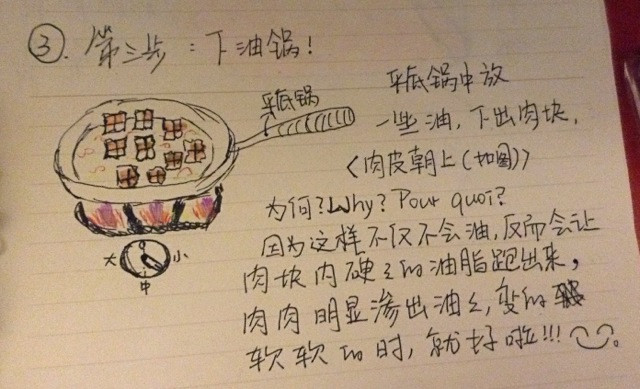 ③. 第三步：下油锅！
平底锅
平底锅中放
一些油，下出肉块，
<肉皮朝上(如图)>
为何？Why？Pour quoi？
因为这样不仅不会油，反而会让
肉块内硬々的油脂跑出来，
肉肉明显渗出油々，变的
软软的时，就好啦!!!
大 小
中